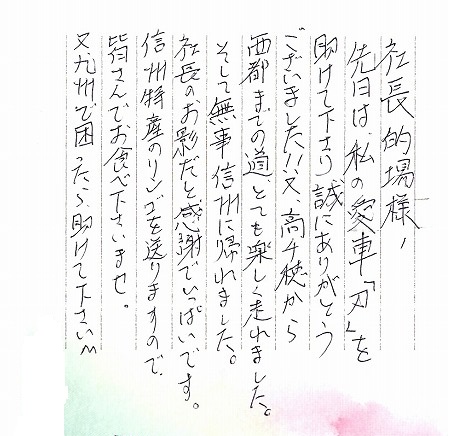 社長的場様、
先日は、私の愛車「刃」を
助けて下さり、誠にありがとう
ございました!!又、高千穂から
西都までの道、とても楽しく走れました。
そして無事信州に帰れました。
社長のお影だと感謝でいっぱいです。
信州特産のリンゴを送りますので、
皆さんでお食べ下さいませ。
又九州で困ったら、助けて下さいm